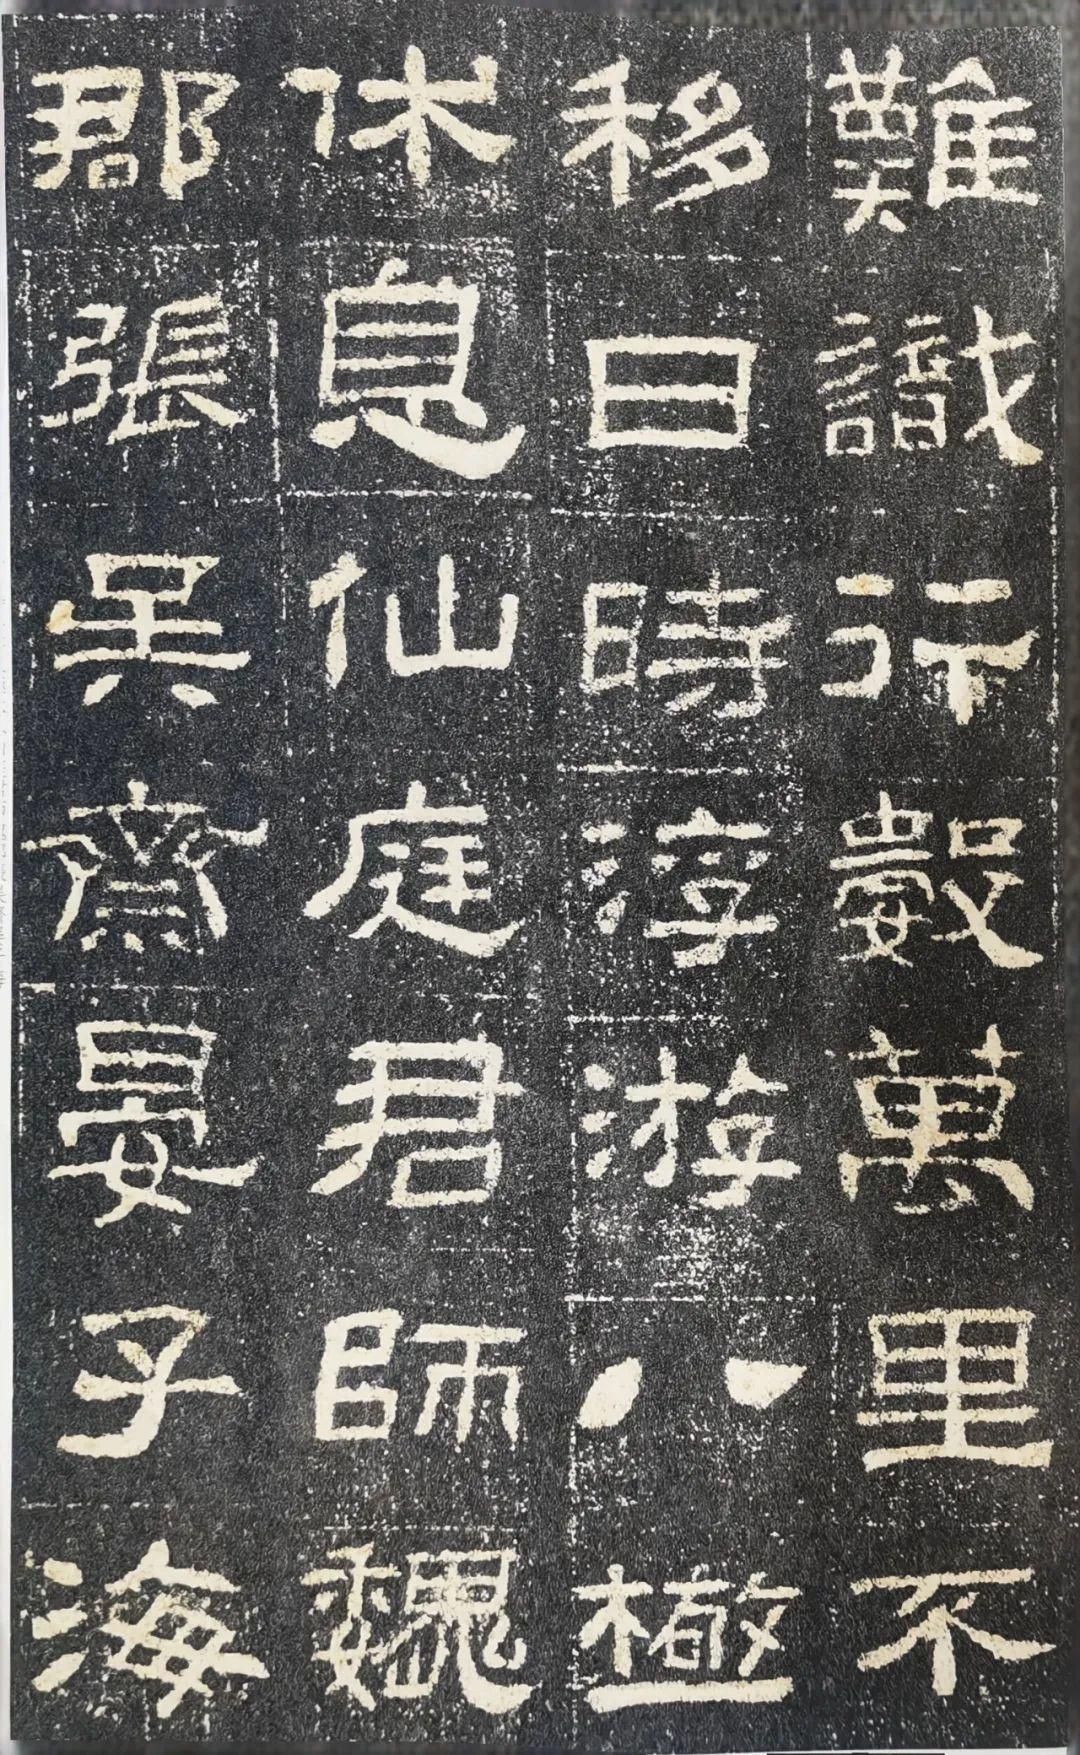 難識行數萬里不
移日時浮游八極
休息仙庭君師魏
郡張吳齋晏子海